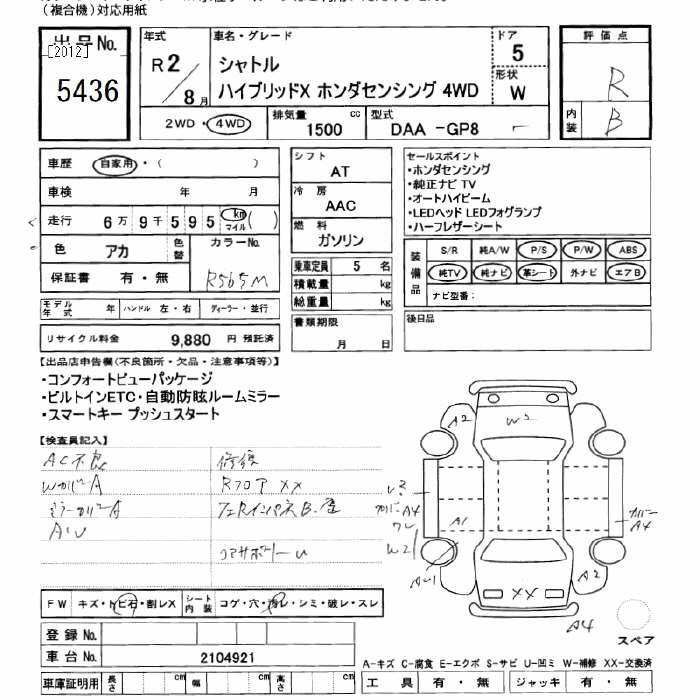 (複合機)対応用紙
出品No.
[2012]
5436
年式
R2/8月
車名・グレード
シャトル
ハイブリッドX ホンダセンシング 4WD
ドア
5
形状
W
評価点
R
内装
B
2WD・4WD
排気量
1500 cc
型式
DAA -GP8
車歴 自家用・( )
車検 年 月
走行 6万9千595 km マイル ( )
色 アカ 色替
カラーNo.
R565M
保証書 有・無
モデル年式 年 ハンドル 左・右 ディーラー・並行
リサイクル料金 9,880 円 預託済
シフト
AT
冷房
AAC
燃料
ガソリン
乗車定員 5 名
積載量 kg
総重量 kg
書類期限
月 日
セールスポイント
・ホンダセンシング
・純正ナビ TV
・オートハイビーム
・LEDヘッド LEDフォグランプ
・ハーフレザーシート
装備品
S/R 純A/W P/S P/W ABS
純TV 純ナビ 革シート 外ナビ エアB
ナビ型番:
後日品
【出品店申告欄(不良箇所・欠品・注意事項等)】
・コンフォートビューパッケージ
・ビルトインETC・自動防眩ルームミラー
・スマートキー プッシュスタート
【検査員記入】
AC不良
WカバーA
ミラーカバーA
AU
修復
Rフロア XX
コアサポートU
A2
W2
A1
A4
W2
A4
A2
XX
A4
スペア
FW キズ・トビ石・割レX シート内装 コゲ・穴・汚レ・シミ・破レ・スレ
登録No.
車台No. 2104921
車庫証明用 長さ cm 幅 cm 高さ cm
A-キズ C-腐食 E-エクボ S-サビ U-凹ミ W-補修 XX-交換済
工具 有・無 ジャッキ 有・無